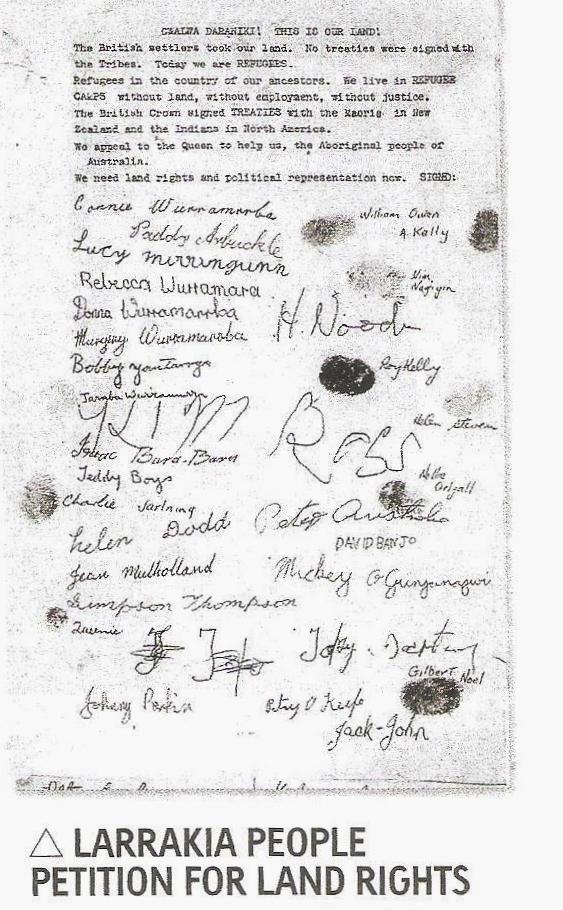 GWALWA DARANIKI! THIS IS OUR LAND!
The British settlers took our land. No treaties were signed with
the Tribes. Today we are REFUGEES.
Refugees in the country of our ancestors. We live in REFUGEE
CAMPS without land, without employment, without justice.
The British Crown signed TREATIES with the Maoris in New
Zealand and the Indians in North America.
We appeal to the Queen to help us, the Aboriginal people of
Australia.
We need land rights and political representation now. SIGNED:
Connie Wurramarrba
William Owen
Paddy Arbuckle
A. Kelly
Lucy Mirringunn
Rebecca Wurramara
Donna Wurramarrba
H. Wood
Murgny Wurramarrba
Bobby
Roy Kelly
Jaraba
KIM
ROSS
Helen Steven
Isaac Bara-Bara
Teddy Boys
Nellie
Charlie
Peter Australia
helen Dodd
DAVID BANJO
Jean Mulholland
Mickey
Simpson Thompson
Queenie
Gilbert Noel
Johnny Perkin
Jack-John
△ LARRAKIA PEOPLE
PETITION FOR LAND RIGHTS